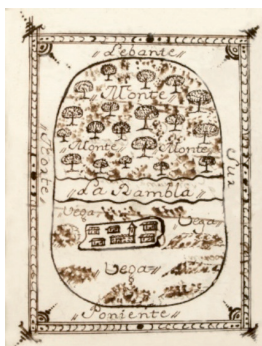 Lebante
Monte
Monte Monte
Norte
Sur
La Rambla
Vega Vega
Vega
Poniente